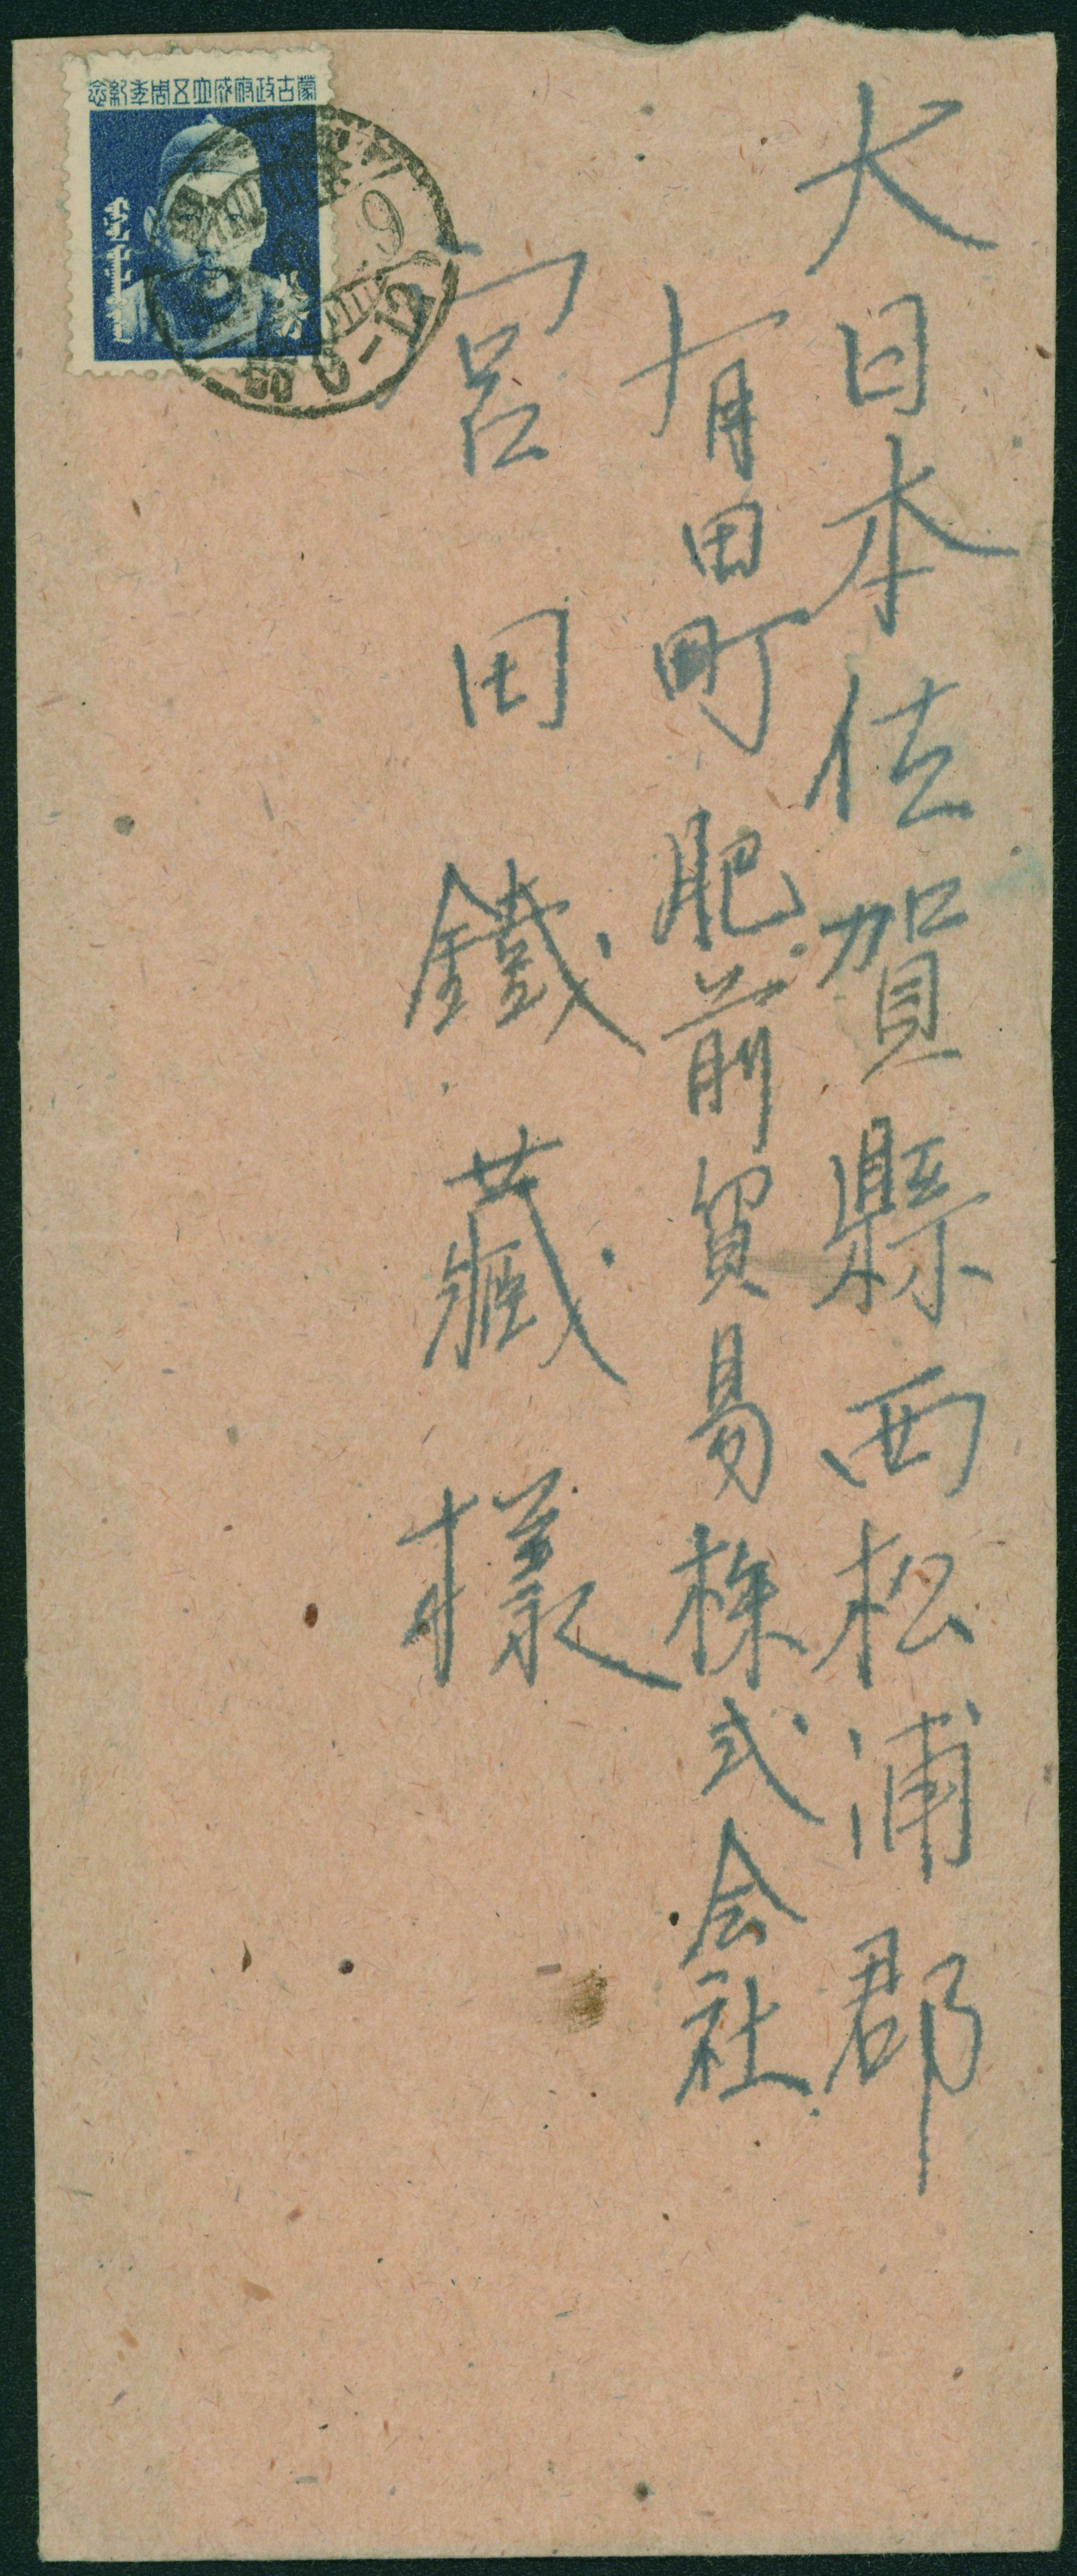 大日本佐賀縣西松浦郡
有田町肥前貿易株式会社
宮田鐵藏様
蒙古政府成立五周年紀念
9
0-12